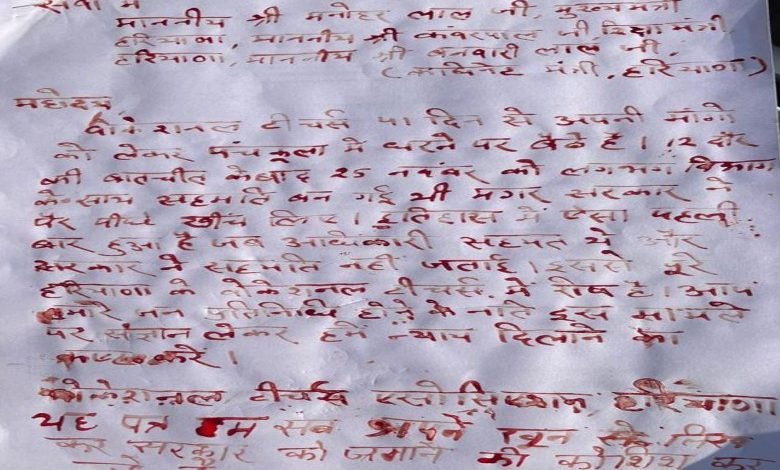 सेवा में
माननीय श्री मनोहर लाल जी, मुख्यमंत्री
हरियाणा, माननीय श्री कवरपाल जी, शिक्षा मंत्री
हरियाणा, माननीय श्री बनवारी लाल जी.
(कैबिनेट मंत्री, हरियाणा)
महोदय
वोकेशनल टीचर्स 41 दिन से अपनी मांगो
को लेकर पंचकूला में धरने पर बैठे है। 12 दौर
की बातचीत के बाद 25 नवंबर को लगभग विभाग
के साथ सहमति बन गई थी मगर सरकार ने
पैर पीछे खींच लिए। इतिहास में ऐसा पहली
बार हुआ है जब अधिकारी सहमत थे और
सरकार ने सहमति नहीं जताई। इससे पूरे
हरियाणा के वोकेशनल टीचर्स में रोष है। आप
हमारे जन प्रतिनिधि होने के नाते इस मामले
पर संज्ञान लेकर हमें न्याय दिलाने का
करे।
वोकेशनल टीचर्स एसोसिएशन, हरियाणा
यह पत्र हम सब अपने खून से लिख
कर सरकार को जगाने की कोशिश कर